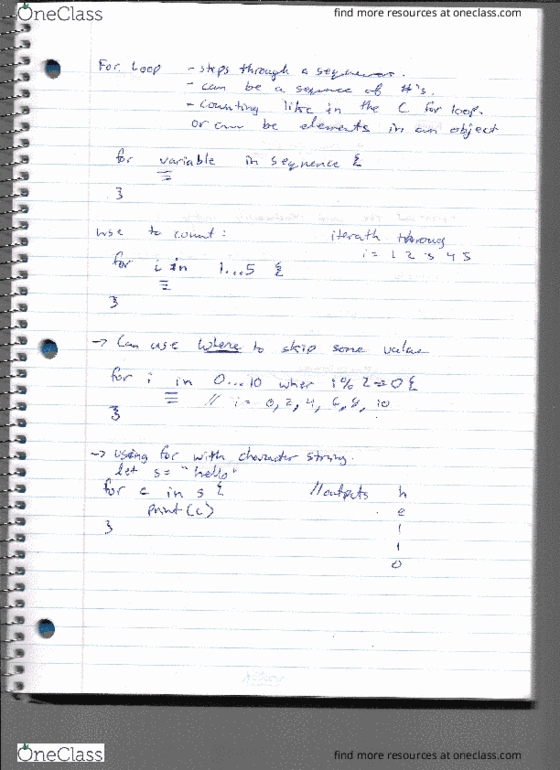 OneClass
find more resources at oneclass.com
For Loop - steps through a sequence.
- can be a sequence of #'s.
- counting like in the C for loop.
or can be elements in an object
for variable in sequence {
}
use to count: iterath through
i = 1 2 3 4 5
for i in 1...5 {
}
→ Can use where to skip some value
for i in 0...10 wher i%2==0{
// i = 0, 2, 4, 6, 8, 10
}
→ using for with character string.
let s = "hello"
for c in s { // outputs h
print(c) e
} l
l
o
OneClass
find more resources at oneclass.com